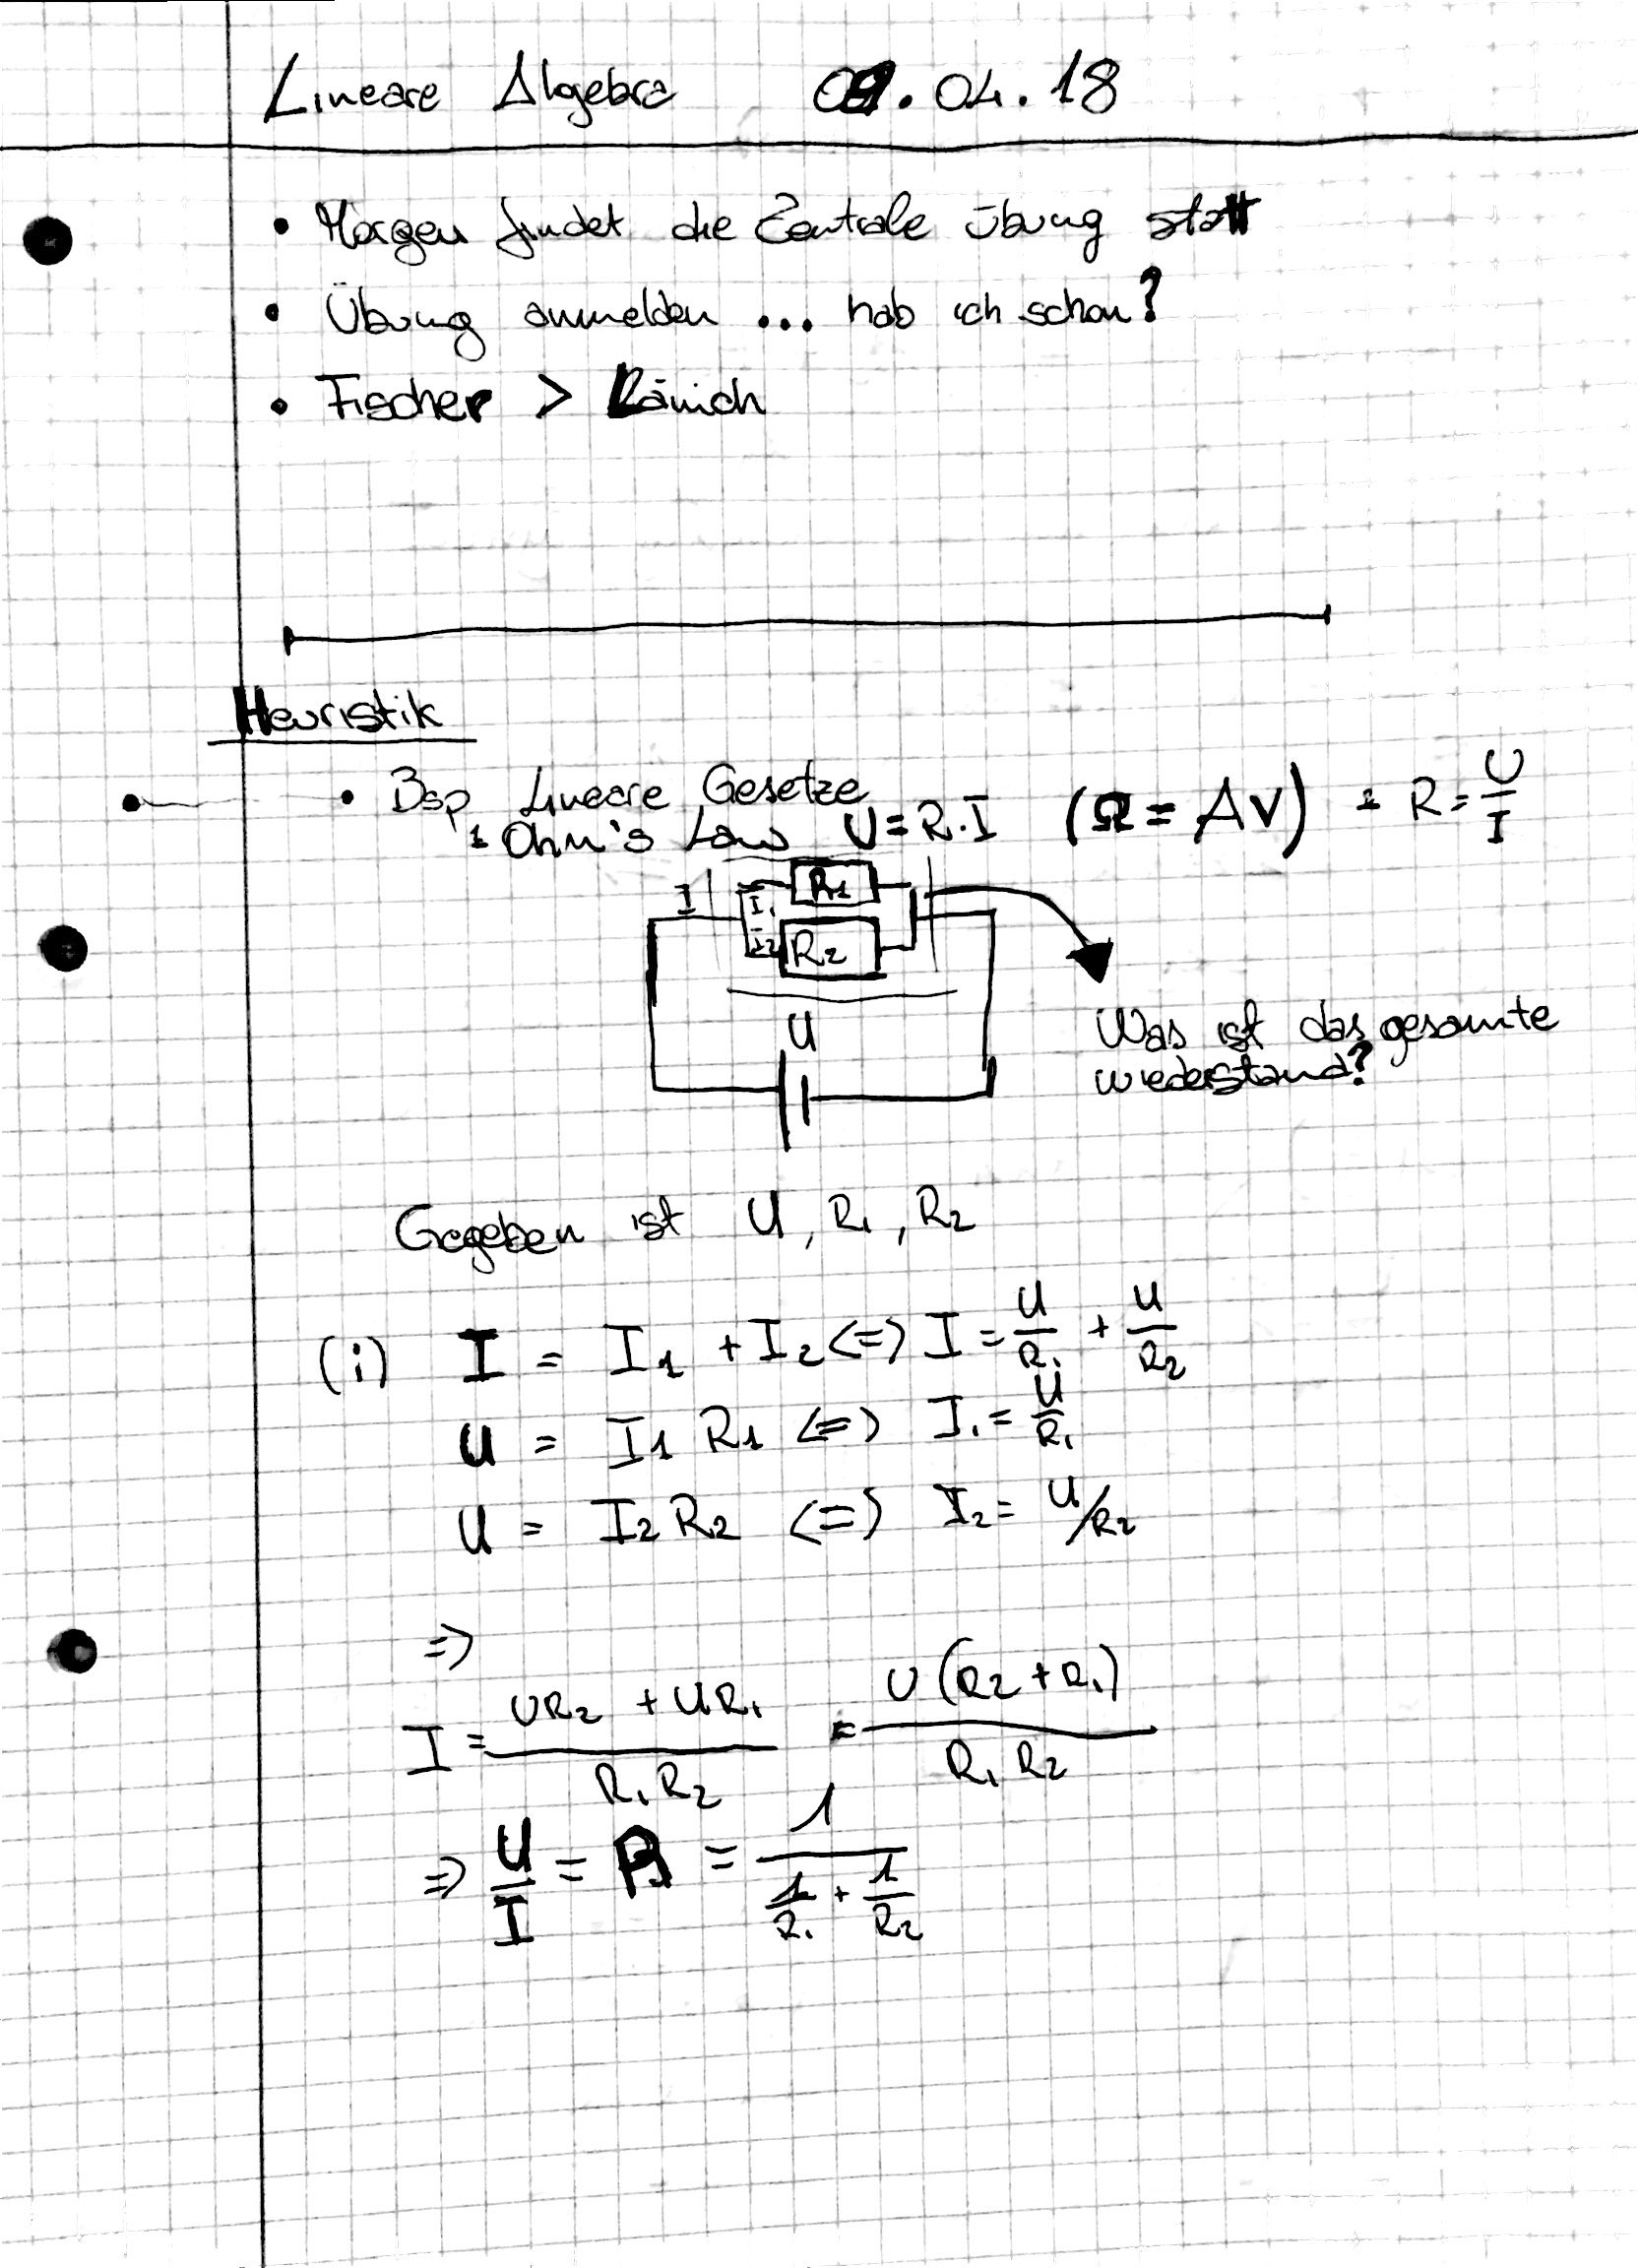 Lineare Algebra 09.04.18
• Morgen findet die Zentrale Übung statt
• Übung anmelden ... hab ich schon?
• Fischer > Jänich
Heuristik
• Bsp Lineare Gesetze
Ohm's Law U = R·I (Ω = AV) R = U/I
I I₁ R1
I2 R2
U
Was ist das gesamte
wiederstand?
Gegeben ist U, R₁, R₂
(i) I = I1 + I2 <=> I = U/R₁ + U/R2
U = I1 R1 <=> I₁ = U/R₁
U = I2 R2 <=> I2 = U/R2
=>
I = (UR2 + UR₁)/(R₁R2) = U(R2 + R₁)/(R₁R2)
=> U/I = R = 1/(1/R₁ + 1/R2)